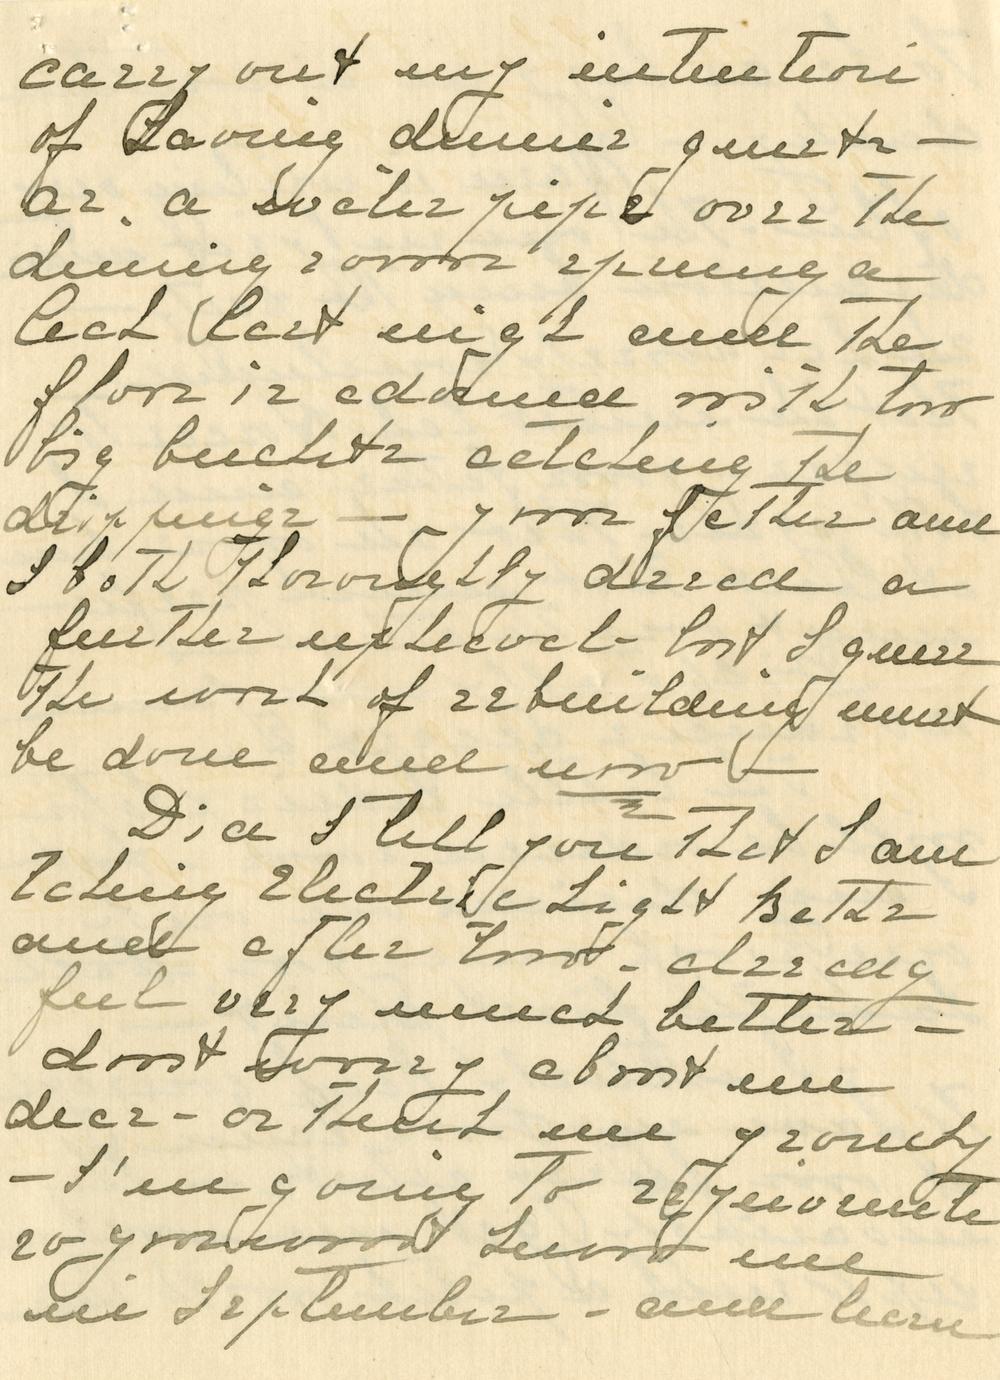 carry out my intention
of having dinner guests —
as. a water pipe over the
dining room sprung a
leak last night and the
floor is adorned with two
big buckets catching the
drippings — your father and
I both thoroughly dread a
further upheaval - but I guess
the work of rebuilding must
be done and now —
Did I tell you that I am
taking Electric Light Baths
and after two - already
feel very much better —
don't worry about me
dear - or think me grouchy
— I'm going to rejuvenate
so you won't know me
in September - and learn